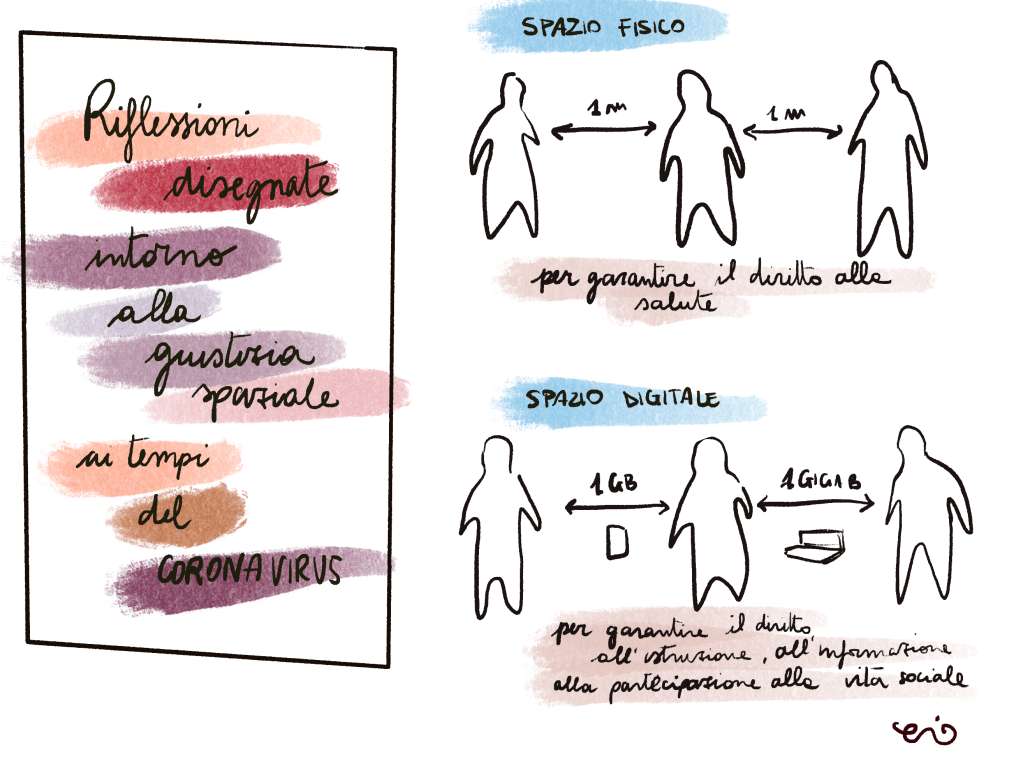 Riflessioni
disegnate
intorno
alla
giustizia
spaziale
ai tempi
del
CORONAVIRUS
SPAZIO FISICO
1 m
1 m
per garantire il diritto alla
salute
SPAZIO DIGITALE
1 GB
1 GIGA B
per garantire il diritto
all'istruzione, all'informazione
alla partecipazione alla vita sociale